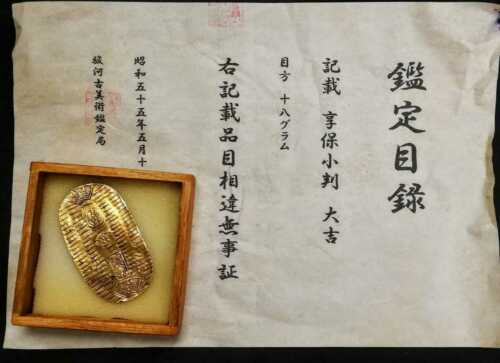 鑑定目録
記載 享保小判 大吉
目方 十八グラム
右記載品目相違無事証
昭和五十五年五月十
駿河古美術鑑定局